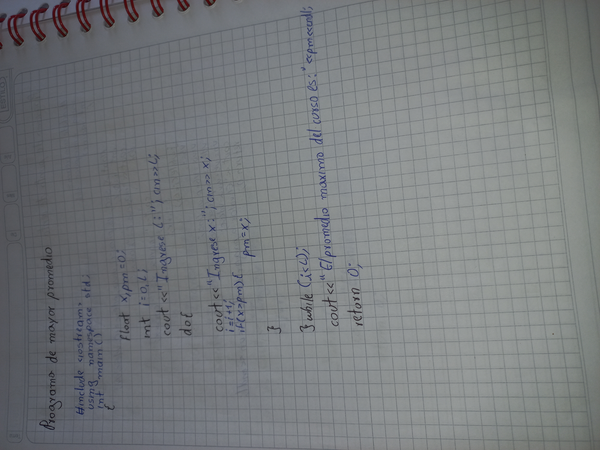 Programa de mayor promedio
#include <iostream>
using namespace std;
int main()
{
float x,pm=0;
int i=0,L;
cout<<"Ingrese L:"; cin>>L;
do{
cout<<"Ingrese x:"; cin>>x;
i=i+1;
if(x>pm){ pm=x;
}
}while(i<L);
cout<<"El promedio maximo del curso es:"<<pm<<endl;
return 0;